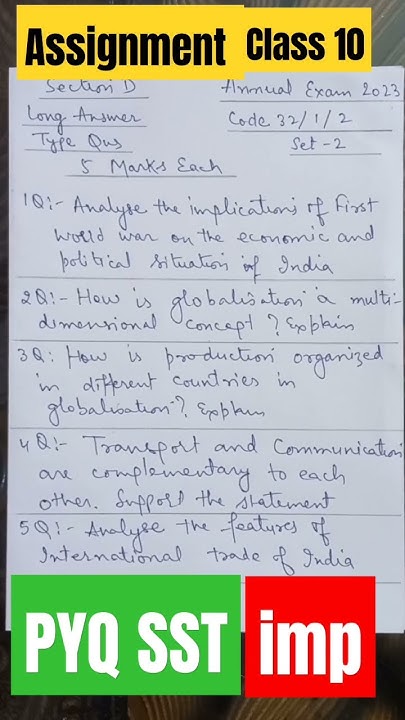 Assignment Class 10
Section D
Annual Exam 2023
Long Answer
Code 32/1/2
Type Qns
Set-2
5 Marks Each
1Q:- Analyse the implications of First
world war on the economic and
political situation of India
2Q:- How is globalisation a multi-
dimensional concept? Explain
3Q: How is production organized
in different countries in
globalisation? Explain
4Q:- Transport and Communication
are complementary to each
other. Support the statement
5Q:- Analyse the features of
International trade of India
PYQ SST imp